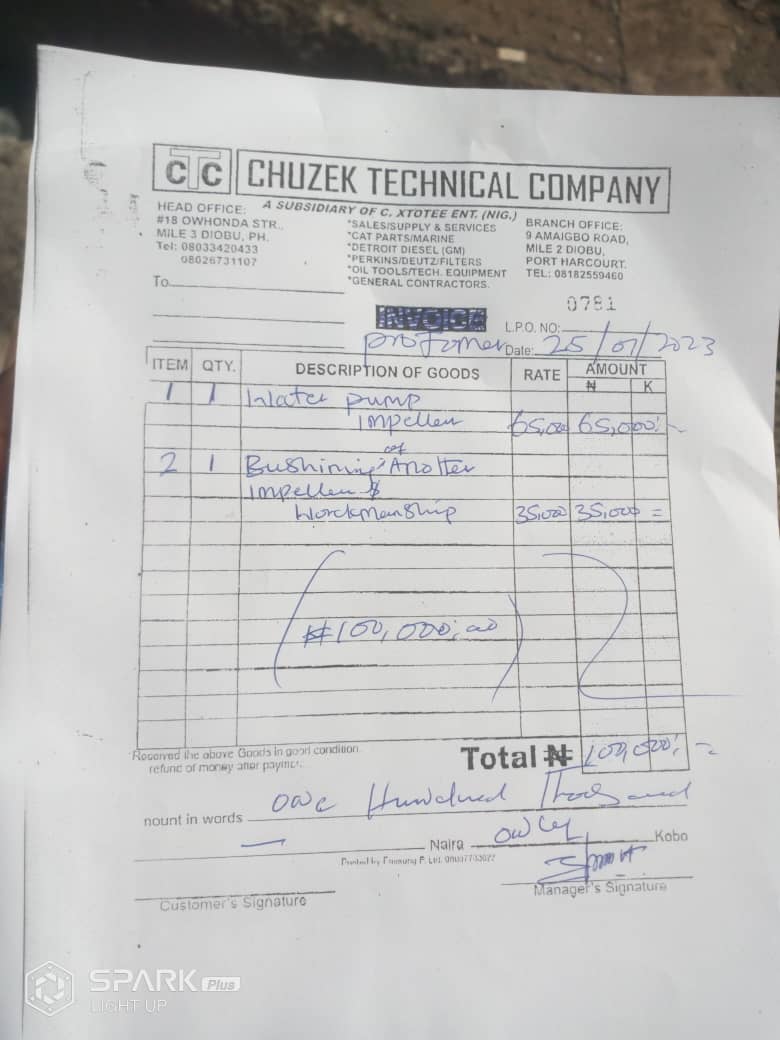 CTC CHUZEK TECHNICAL COMPANY
A SUBSIDIARY OF C. XTOTEE ENT. (NIG.)
HEAD OFFICE:
#18 OWHONDA STR.,
MILE 3 DIOBU, PH.
Tel: 08033420433
08026731107
*SALES/SUPPLY & SERVICES
*CAT PARTS/MARINE
*DETROIT DIESEL (GM)
*PERKINS/DEUTZ/FILTERS
*OIL TOOLS/TECH. EQUIPMENT
*GENERAL CONTRACTORS.
BRANCH OFFICE:
9 AMAIGBO ROAD,
MILE 2 DIOBU,
PORT HARCOURT.
TEL: 08182559460
To
0781
INVOICE
L.P.O. NO:
profomer Date: 25/01/2023
ITEM QTY. DESCRIPTION OF GOODS RATE AMOUNT
₦ K
1 1 Water pump
impeller 65,000 65,000:
of
2 1 Bushining Anotter
impeller &
Workmanship 35,000 35,000 =
₦100,000:00
Received the above Goods in good condition.
refund of money after payment.
Total ₦ 100,000: =
nount in words one Hundred Thousand
Naira only Kobo
Customer's Signature
Manager's Signature
SPARK Plus
LIGHT UP